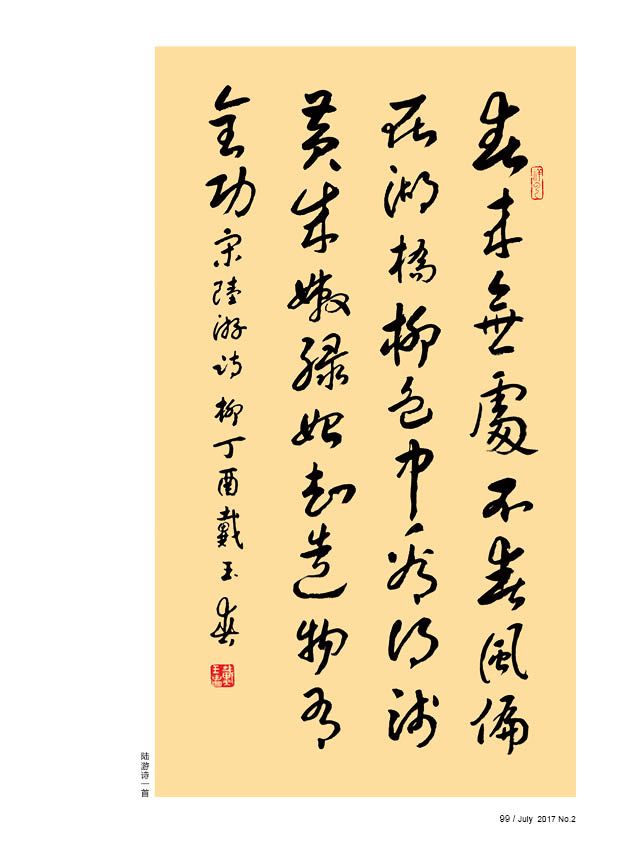 春来無處不春風偏
在湖橋柳色中看得浅
黄成嫩緑始知造物有
全功 宋陸游诗 柳 丁酉戴玉
陆游诗一首
99 / July 2017 No.2